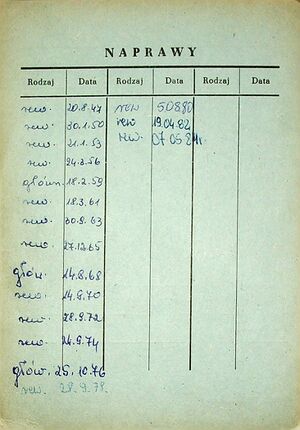 NAPRAWY
Rodzaj Data Rodzaj Data Rodzaj Data
rew. 20.8.47
rew. 30.1.50
rew. 21.1.53
rew. 24.3.56
główn. 18.2.59
rew. 18.3.61
rew. 30.8.63
rew. 27.12.65
głów. 14.8.68
rew. 14.9.70
rew. 28.9.72
rew. 24.9.74
głów. 25.10.76
rew. 28.9.78.
rew 50880
rew 19.04.82
rew. 07 05 84r.